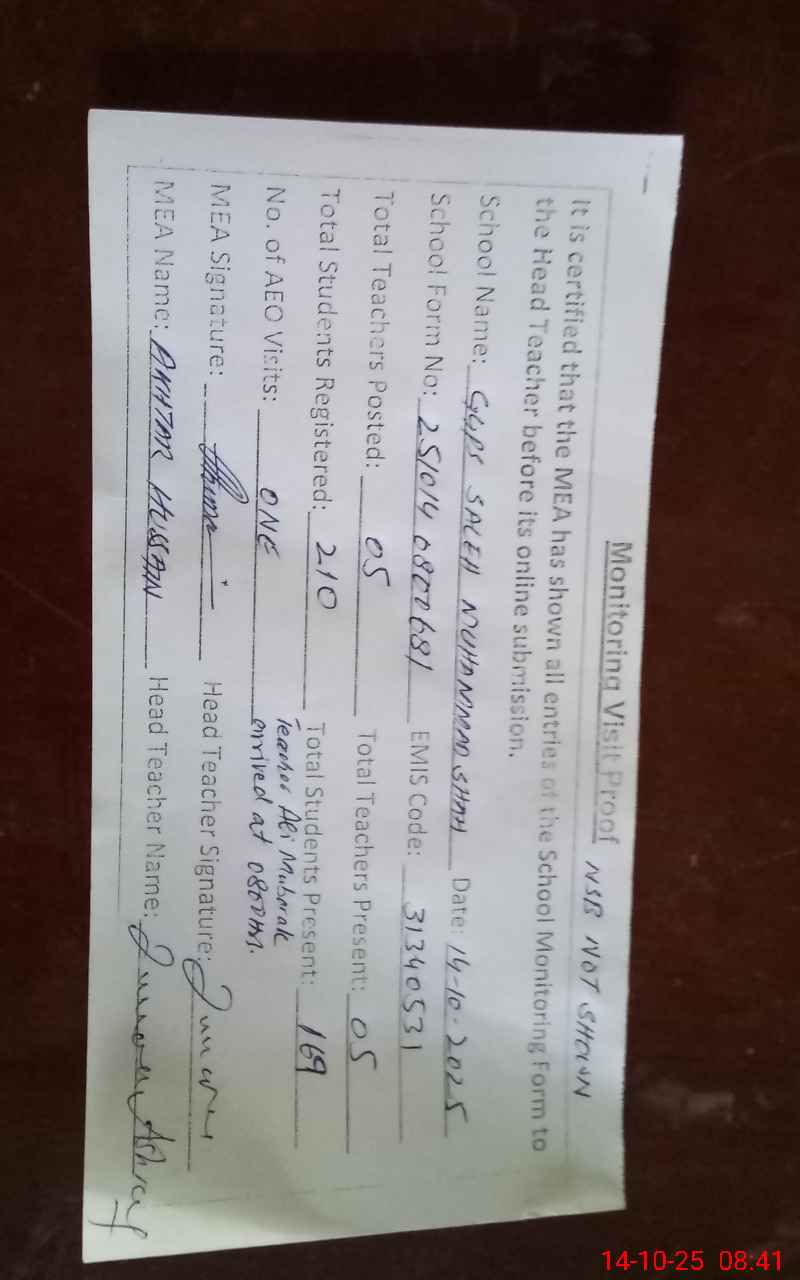 Monitoring Visit Proof NSB NOT SHOWN
It is certified that the MEA has shown all entries of the School Monitoring Form to
the Head Teacher before its online submission.
School Name: GGPS SALEH MUHAMMAD SHAH Date: 14-10-2025
School Form No: 251014 0800681 EMIS Code: 31340531
Total Teachers Posted: 05 Total Teachers Present: 05
Total Students Registered: 210 Total Students Present: 169
No. of AEO Visits: ONE Teacher Ali Mubarak
arrived at 0800HRS.
MEA Signature: Head Teacher Signature:
MEA Name: AKHTAR HUSSAIN Head Teacher Name: Ashraf
14-10-25 08:41